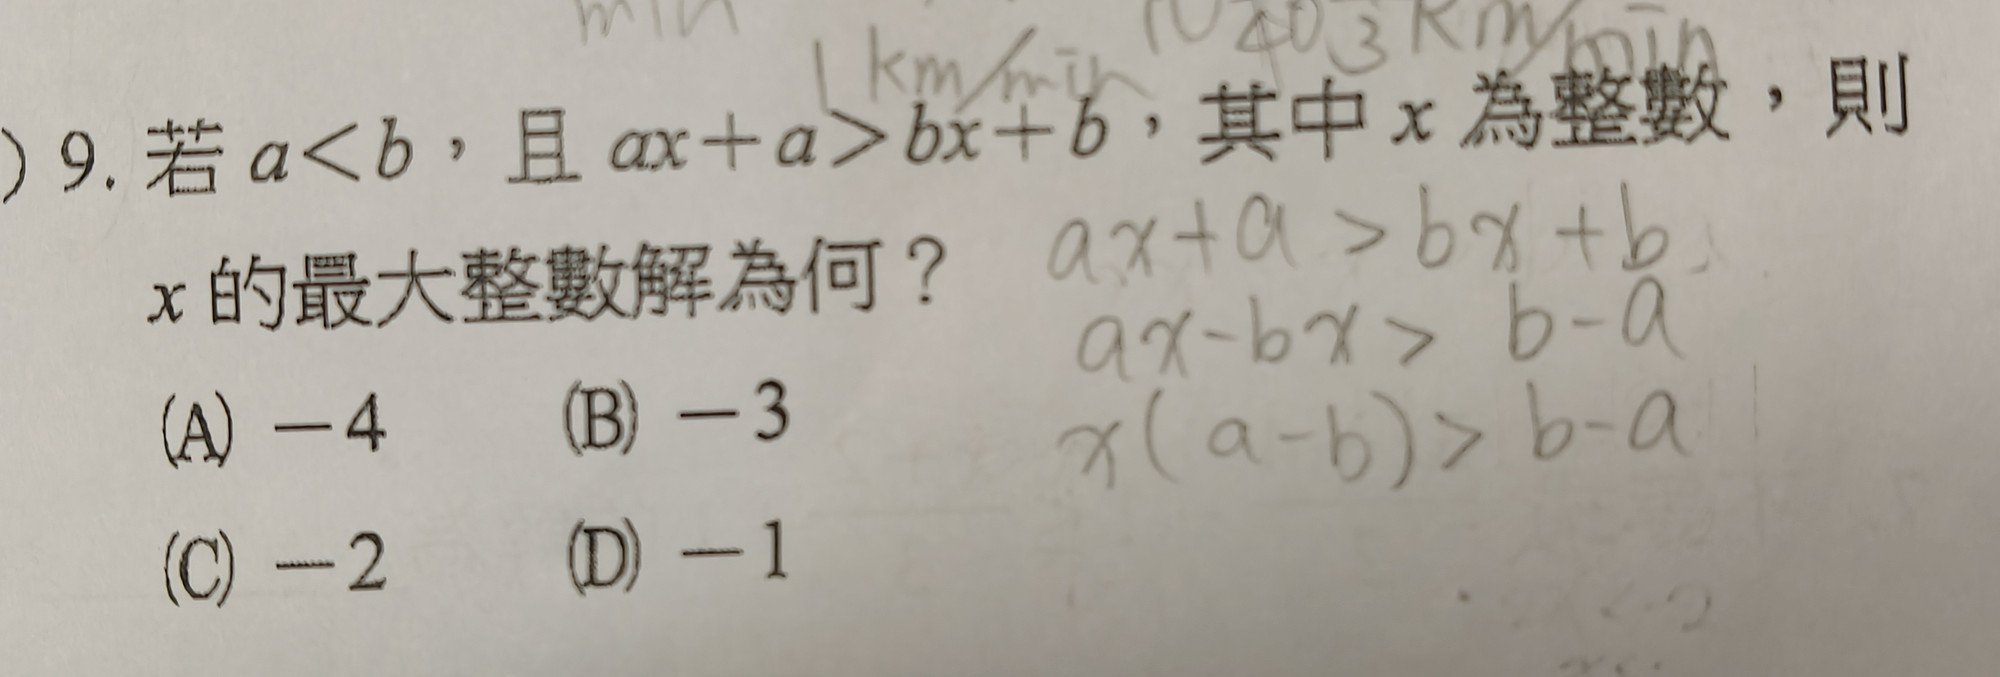 min
1km/min
3 km/min
)9. 若 a<b，且 ax+a>bx+b，其中 x 為整數，則
x 的最大整數解為何？
(A) －4 (B) －3
(C) －2 (D) －1
ax+a>bx+b
ax-bx> b-a
x(a-b)> b-a